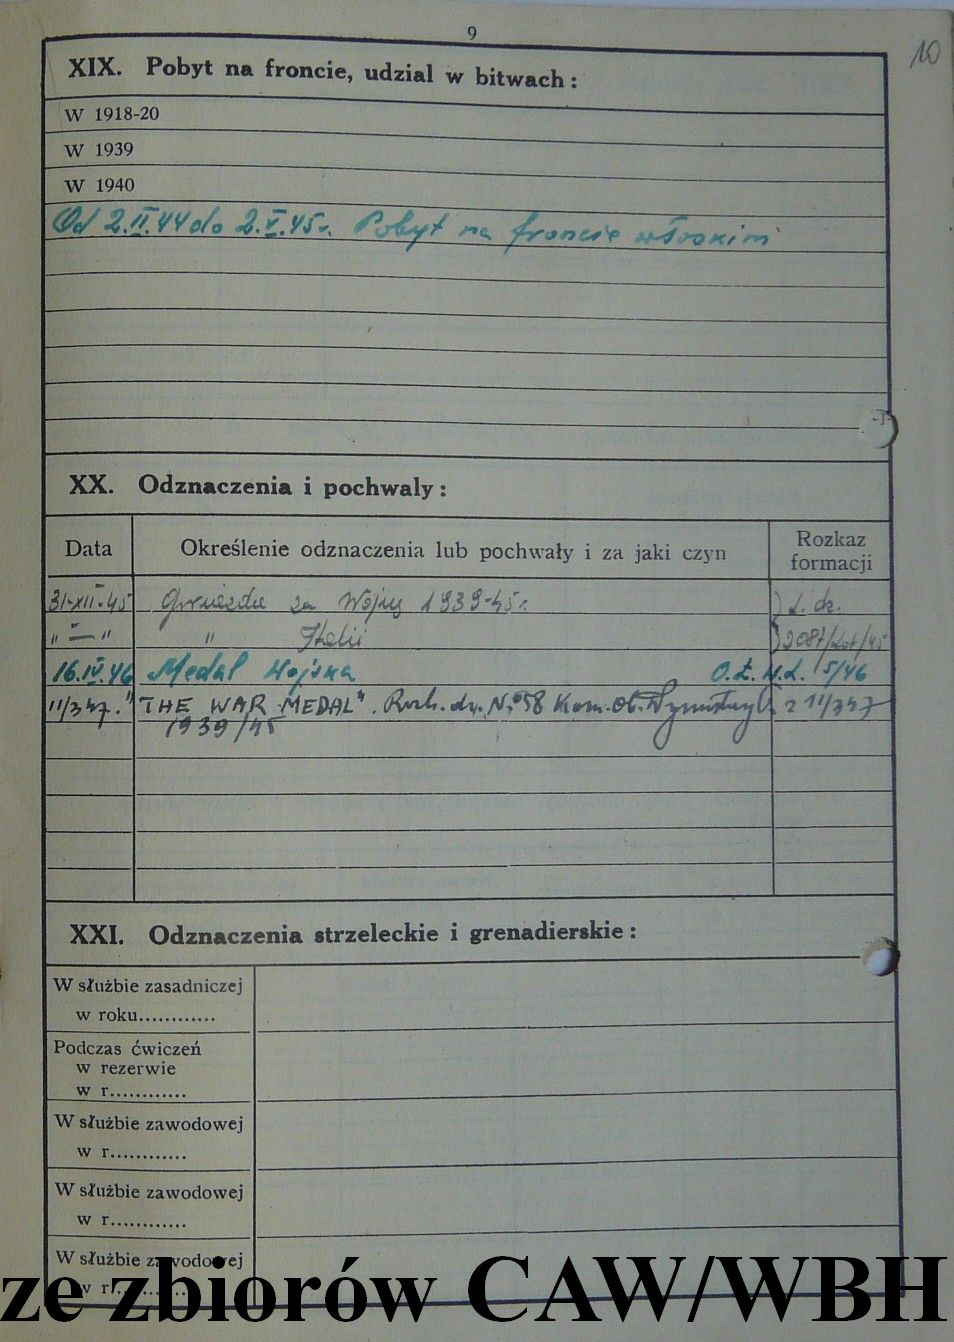 9
10
XIX. Pobyt na froncie, udział w bitwach:
W 1918-20
W 1939
W 1940
Od 2.II.44 do 2.V.45r. Pobyt na froncie włoskim
XX. Odznaczenia i pochwaly:
Data Określenie odznaczenia lub pochwały i za jaki czyn Rozkaz formacji
31-XII-45 Gwiazda za Wojnę 1939-45r. L. dz.
" — " " Italii 2087/Lot/45
16.IV.46 Medal Wojska O.Ł.N.L. 5/46
11/3 47. "THE WAR MEDAL". Rozk. dz. N.º 58 Kom. Ob. z 11/3 47
1939/45
XXI. Odznaczenia strzeleckie i grenadierskie:
W służbie zasadniczej
w roku............
Podczas ćwiczeń
w rezerwie
w r............
W służbie zawodowej
w r............
W służbie zawodowej
w r............
W służbie zawodowej
w r............
ze zbiorów CAW/WBH